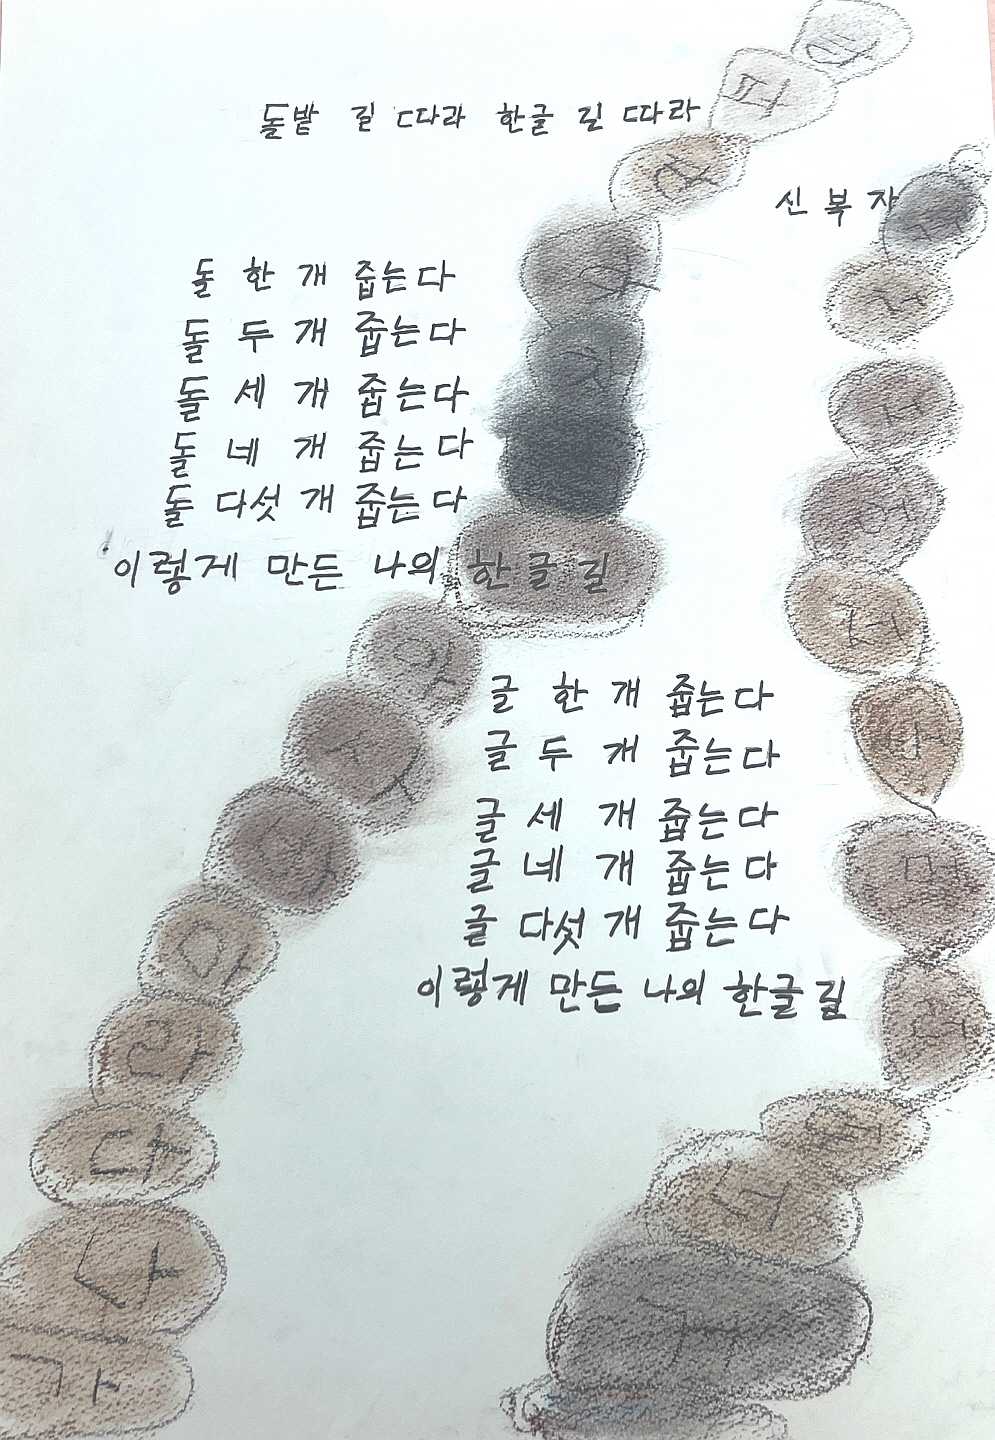 돌밭 길 따라 한글 길 따라
신복자
돌 한 개 줍는다
돌 두 개 줍는다
돌 세 개 줍는다
돌 네 개 줍는다
돌 다섯 개 줍는다
이렇게 만든 나의 한글 길
글 한 개 줍는다
글 두 개 줍는다
글 세 개 줍는다
글 네 개 줍는다
글 다섯 개 줍는다
이렇게 만든 나의 한글 길
파
타
카
차
자
아
사
바
마
라
다
나
가
머
러
너
거